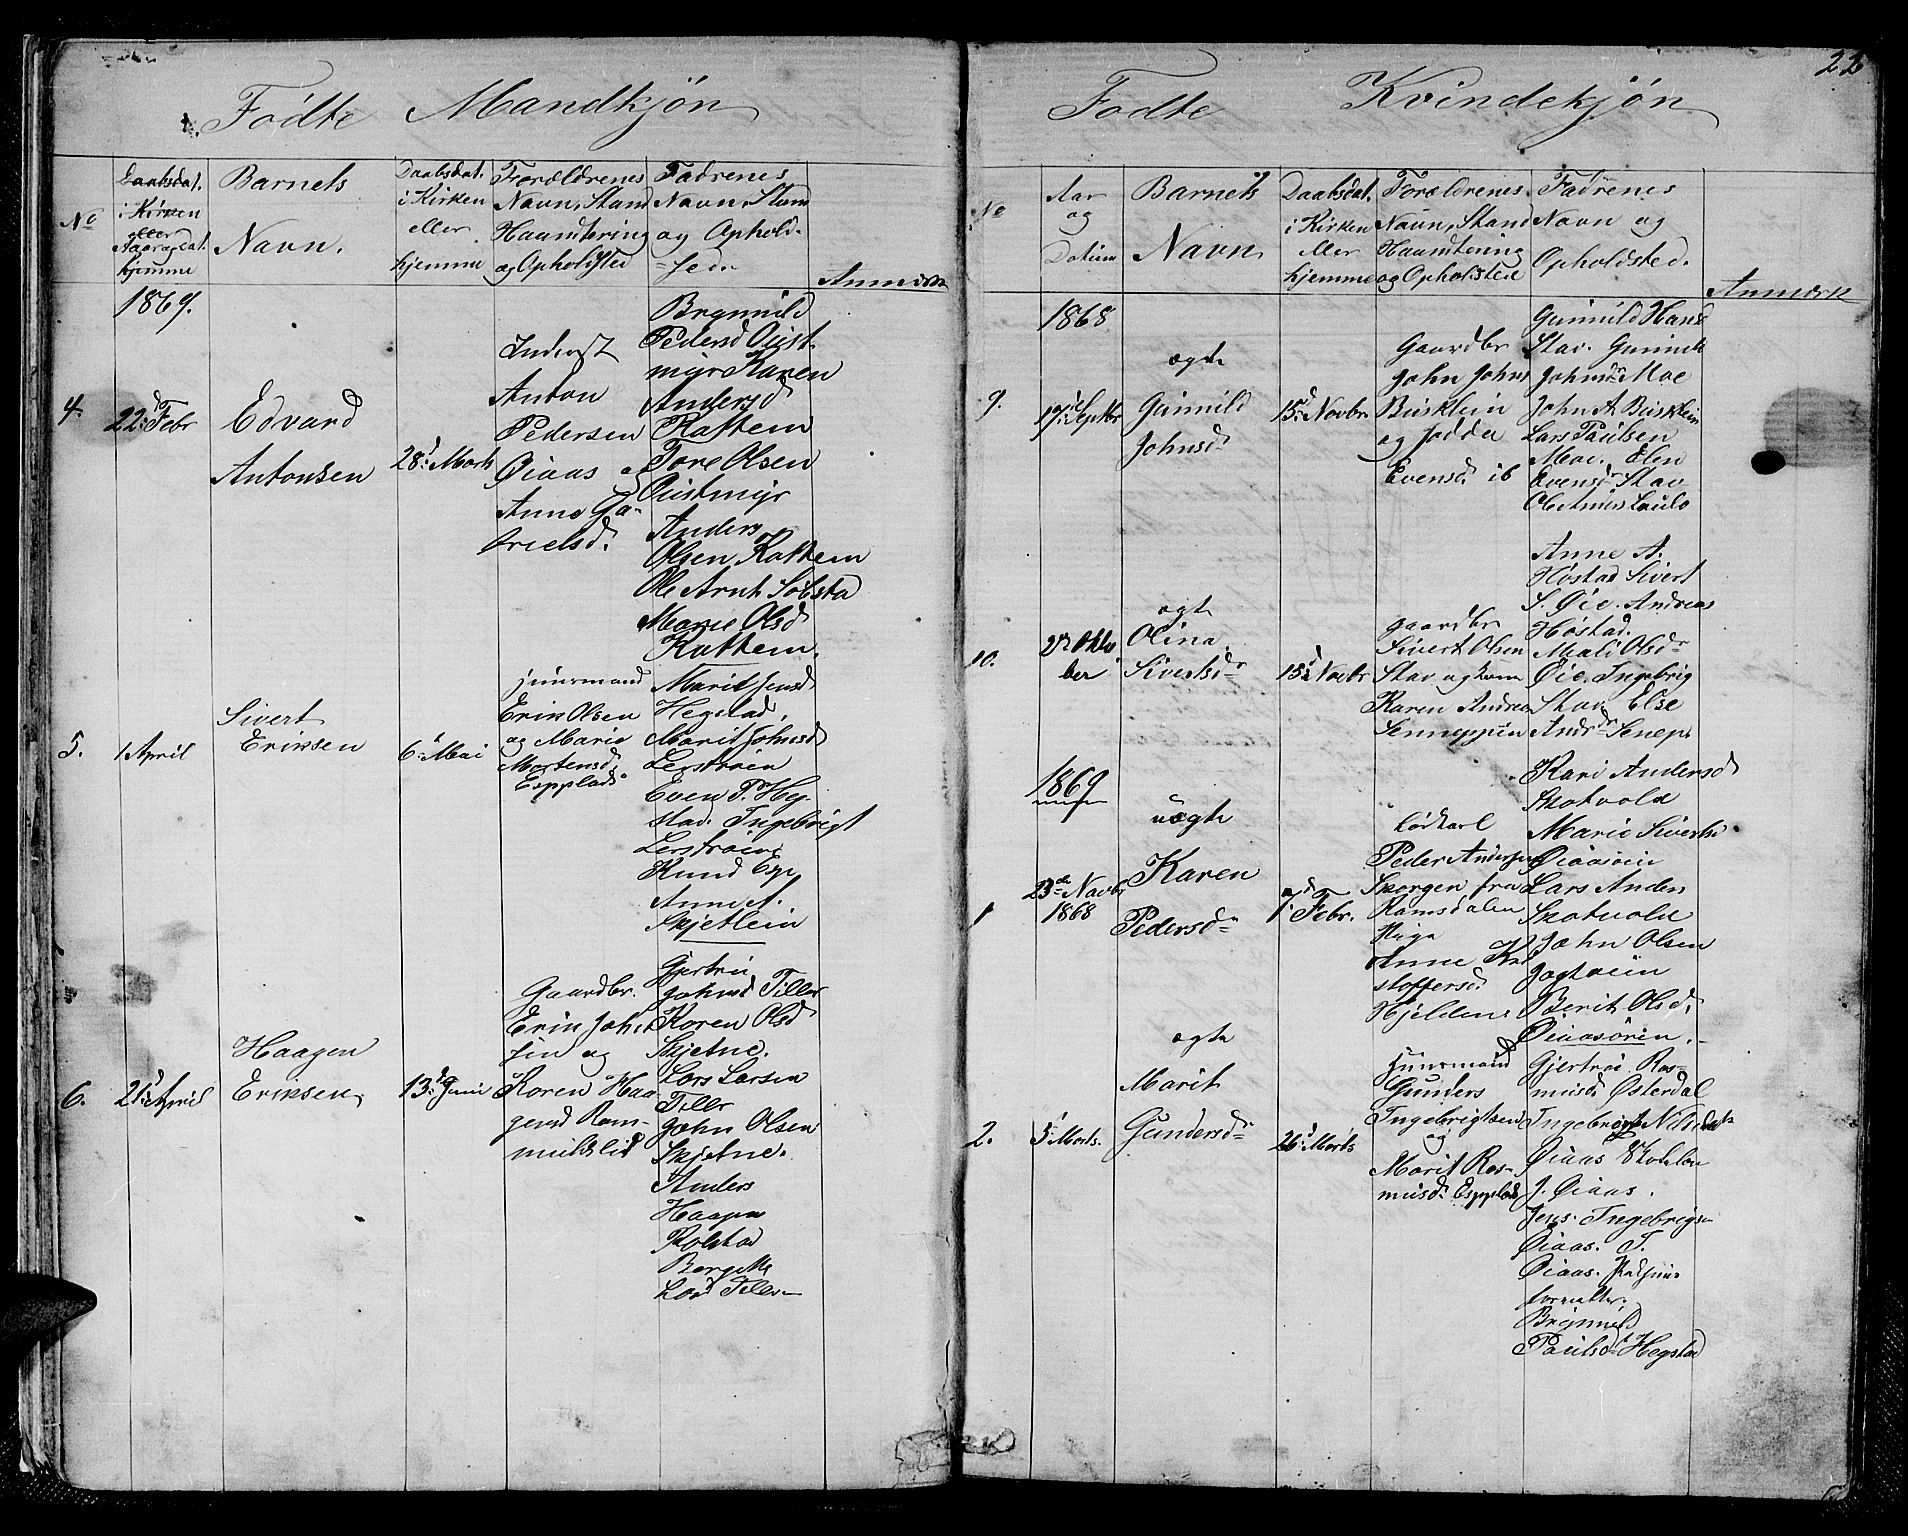 Födte Mandkjøn
No
Daabsdat.
i Kirken
eller
hjemme
Barnets
Navn.
Daabsdat.
i Kirken
eller
hjemme
Forældrenes
Navn, Stand
Haandtering
og Opholdsted
Fadrenes
Navn, Stand
og Ophold-
Anmerk
1869.
4.
22d Febr
Edvard
Antonsen
28d Marts
Inderst
Anton
Pedersen
Øiaas og
Anne Ga-
brielsd.
Brynnild
Pedersd Øust
myr Karen
Andersd
Kattem
Tore Olsen
Øustmyr
Anders
Olsen Kattem
Ole Arnt Sobstad
Marie Olsd
Kattem.
5.
1 April
Sivert
Eriksen
6d Mai
Huusmand
Erik Olsen
og Marie
Mortensd
Espplads
Marit Jensd
Hegstad,
Marit Johnsd
Lerstrøen
Even P. Heg-
stad. Ingebrigt
Lerstrøen
Knud Esp
Anne A.
Skjetlein
6.
21d April
Haagen
Eriksen
13d Juni
Gaardbr.
Erik John
sen og
Karen Haa
gensd Ram-
mulslid
Gjertru
Johnsd Tiller
Karen Olsd
Skjetne.
Lars Larsen
Tiller
John Olsen
Skjetne.
Anders
Haagen
Kolstad
Tiller
22
Fødte Kvindekjøn
No
Aar
og
Datum
Barnets
Navn
Daabsdat.
i Kirken
eller
hjemme
Forældrenes
Navn, Stand
Haandtering
og Opholdsted
Fadrenes
Navn og
Opholdsted.
Anmerk
1868
9.
17de Septbr
ægte
Gunnild
Johnsd
15d Novbr
Gaardbr
John Johns
Busklein
og Jødde
Evensd. ib
Gunnild Hans
Stav. Gunnil
Johnsdr Moe
John A. Busklein
Lars Paulsen
Moe. Elen
Evensdr Stav
10.
2d Okto
ber
ægte
Olina
Sivertsdr
15d Novbr
gaardbr
Sivert Olsen
Stav og kone
Karen Andrea
Senneppen
Anne A.
Høstad Sivert
S. Øie. Andreas
Høstad.
Mali Olsdr
Øie. Ingebrig
Stav Else
Andrsdr Senep.
1869
1
23de Novbr
1868
uægte
Karen
Pedersdr
7d Febr.
Ladkarl
Peder Andersen
Skorgen fra
Romsdalen
Pige
Anne Kri
stoffersd
Hjelden
Kari Andersd
Skotvold
Marie Siverts
Øiaasøien
Lars Anden
Skotvold
John Olsen
Jagtøien
Berit Olsd.
Øiaasøren.
2.
5 Marts.
ægte
Marit
Gundersdr
26d Marts
Huusmand
Gunders
Ingebrigtsen
og
Marit Ras-
musd. Espplads
Gjertrø Ras-
musd. Østerdal
Ingebrigt
Øiaas
J. Øiaas.
Jens Ingebrigs
Øiaas. T.
Øiaas.
Brynnild
Paulsd Hegstad